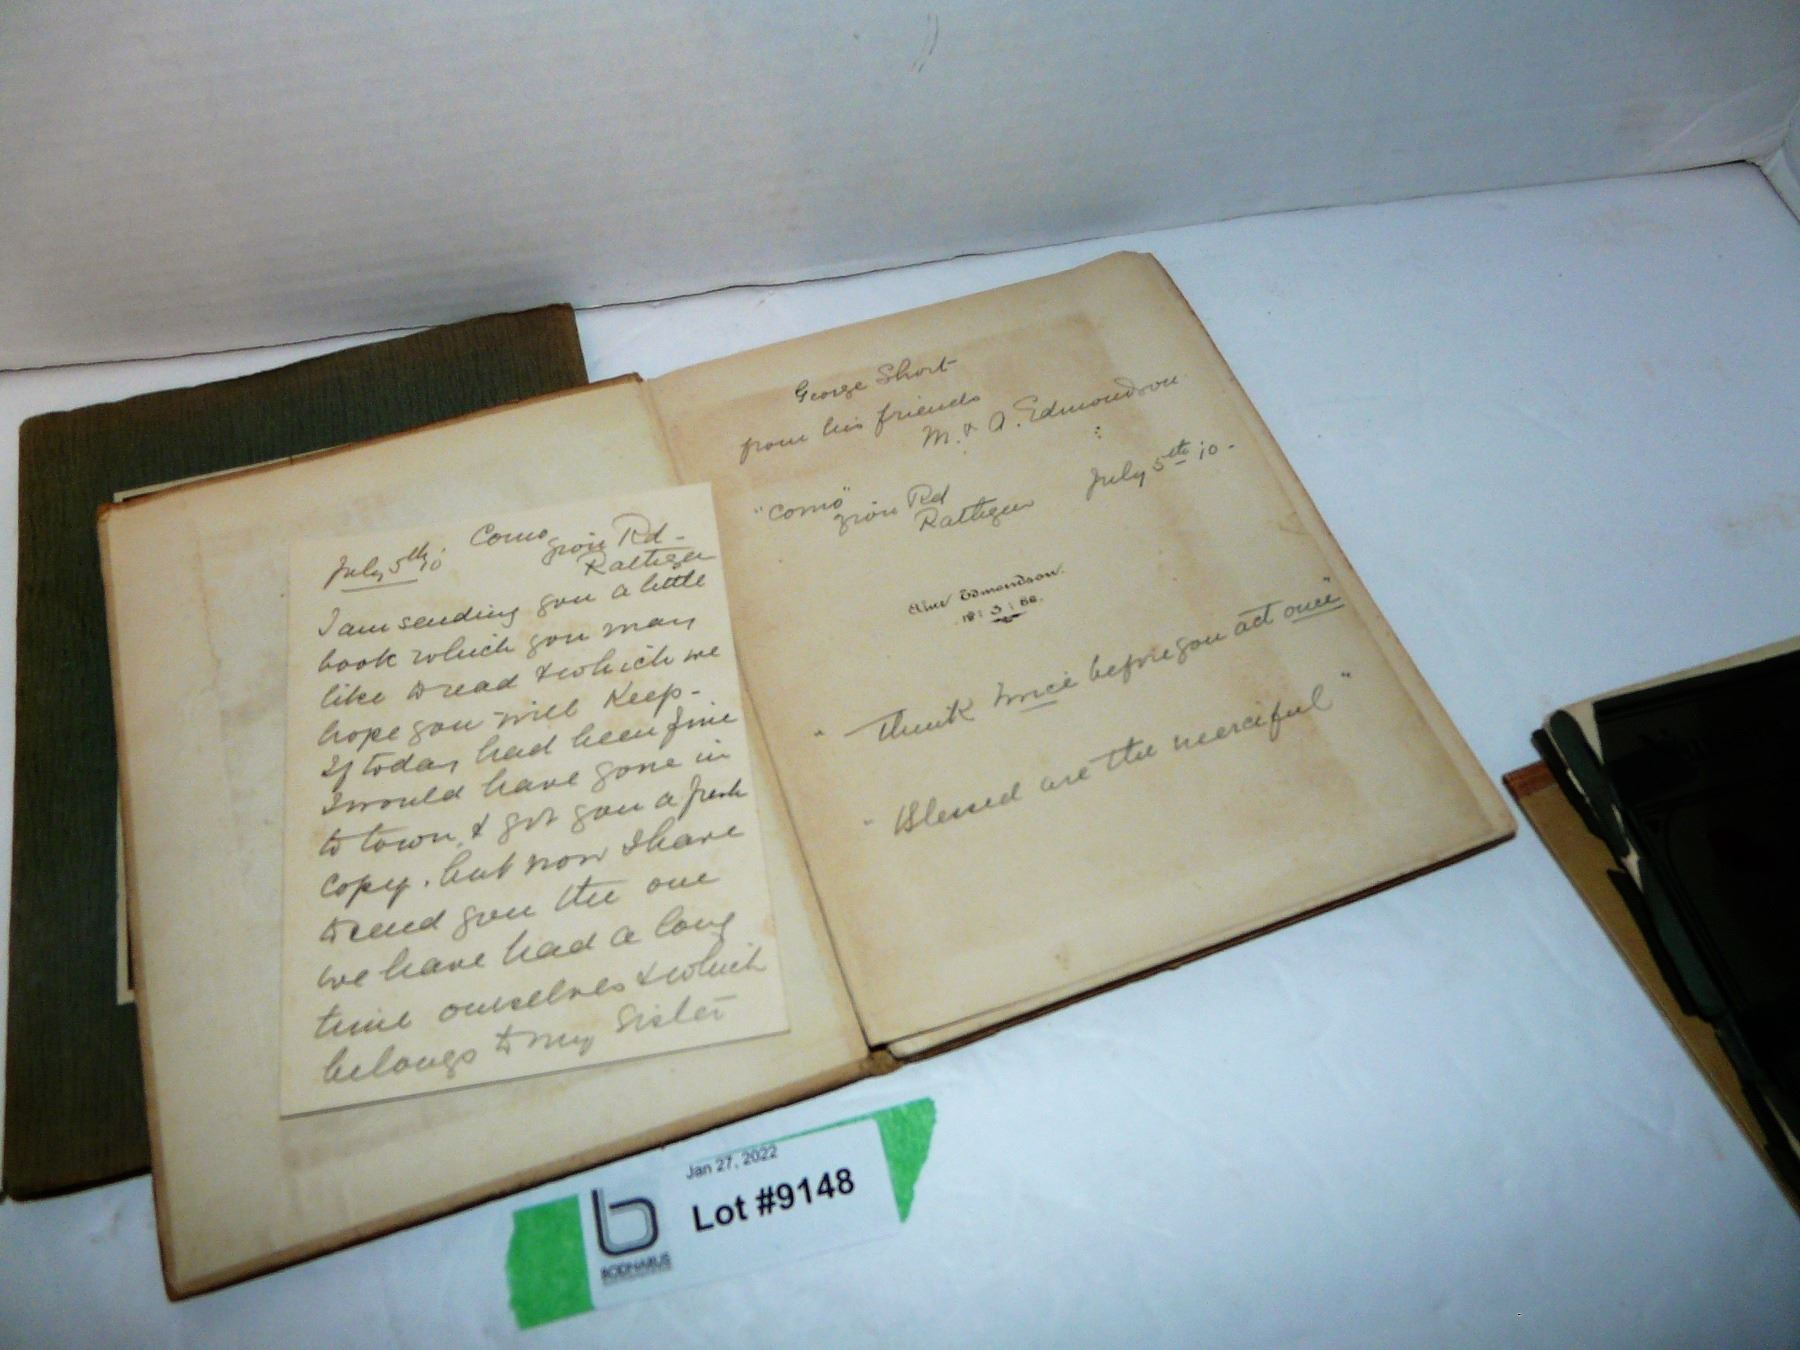 Como
Zion Rd -
July 5th 10
Rathgar
I am sending you a little
book which you may
like to read & which we
hope you will keep -
If today had been fine
I would have gone in
to town & got you a fresh
copy. but now I have
to send you the one
we have had a long
time ourselves & which
belongs to my Sister
George Short
from his friends
M. & A. Edmondson
"Como"
Zion Rd
Rathgar
July 5th 10 -
Edmondson.
18:3:88.
"Think twice before you act once"
"Blessed are the merciful"
Jan 27, 2022
Lot #9148
BODNARUS